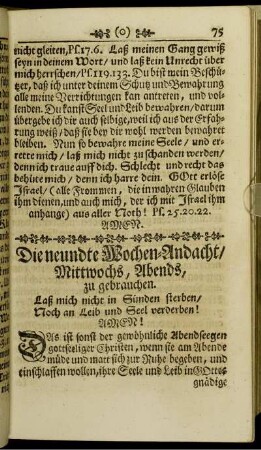 (o) 75
nicht gleiten, Ps. 17.6. Laß meinen Gang gewiß
seyn in deinem Wort/ und laß kein Unrecht über
mich herrschen/ Ps. 119.133. Du bist mein Beschü-
tzer, daß ich unter deinem Schutz und Bewahrung
alle meine Verrichtungen kan antreten, und vol-
lenden. Du kanst Seel und Leib bewahren/ darum
übergebe ich dir auch selbige, weil ich aus der Erfah-
rung weiß/ daß sie bey dir wohl werden bewahret
bleiben. Nun so bewahre meine Seele/ und er-
rette mich/ laß mich nicht zu schanden werden/
denn ich traue auff dich. Schlecht und recht das
behüte mich/ denn ich harre dein. GOtt erlöse
Israel/ (alle Frommen, die in wahren Glauben
ihm dienen, und auch mich, der ich mit Israel ihm
anhange) aus aller Noth! Ps. 25.20.22.
AMEN.
Die neundte Wochen-Andacht/
Mittwochs, Abends,
zu gebrauchen.
Laß mich nicht in Sünden sterben/
Noch an Leib und Seel verderben!
AMEN!
DAs ist sonst der gewöhnliche Abendseegen
gottseeliger Christen, wenn sie am Abende
müde und matt sich zur Ruhe begeben, und
einschlaffen wollen, ihre Seele und Leib in GOttes
gnädige